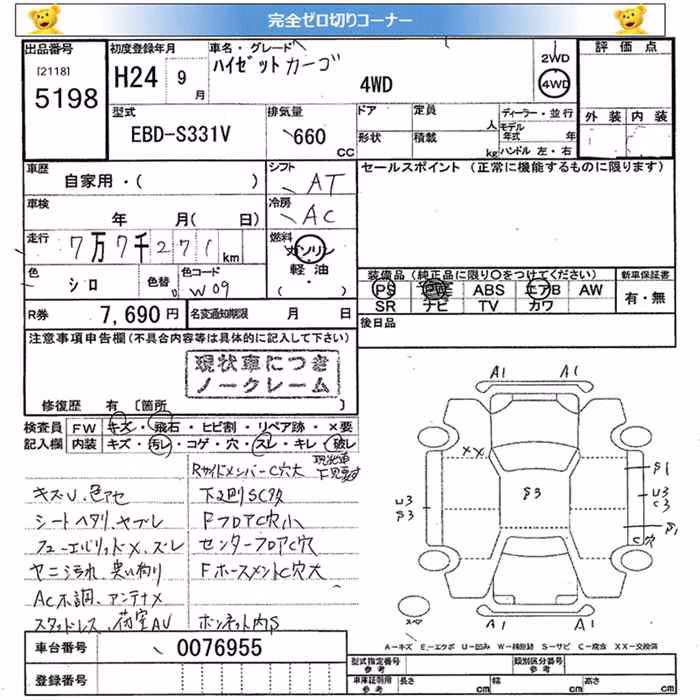 完全ゼロ切りコーナー
出品番号
[2118]
5198
初度登録年月
H24 9月
車名・グレード
ハイゼットカーゴ
4WD
2WD
4WD
評価点
外装 内装
型式
EBD-S331V
排気量
660 CC
ドア 定員 人
形状 積載 kg
ディーラー・並行
モデル年式 年
ハンドル 左・右
車歴
自家用・( )
シフト
AT
セールスポイント (正常に機能するものに限ります)
車検
年 月( 日)
冷房
AC
走行
7万7千271km
燃料
ガソリン
軽油
・
( )
色
シロ
色替
色コード
W09
装備品(純正品に限り○をつけてください)
PS PW ABS エアB AW
SR ナビ TV カワ
新車保証書
有・無
R券 7,690円
名変通知期限 月 日
後日品
注意事項申告欄(不具合内容等は具体的に記入して下さい)
現状車につき
ノークレーム
修復歴 有 [箇所
検査員 FW キズ・飛石・ヒビ割・リペア跡・×要
記入欄 内装 キズ・汚レ・コゲ・穴・スレ・キレ・破レ
RサイドメンバーC穴大
キズU、色アセ
下廻りSC多
シートヘタリ、ヤブレ
FフロアC穴小
フューエルリッドX、ズレ
センターフロアC穴
ヤニ汚れ、臭い有り
FホースメントC穴大
AC不調、アンテナX
スタッドレス、荷室AU
ボンネット内S
A1 A1
XX
S3
S1
U3
S3
U3
C3
S1
C穴
A1 A1
A-キズ E-エクボ U-凹み W-補修跡 S-サビ C-腐食 XX-交換済
車台番号 0076955
登録番号
型式指定番号 参考
類別区分番号 参考
車庫証明用 参考
長さ cm
幅 cm
高さ cm